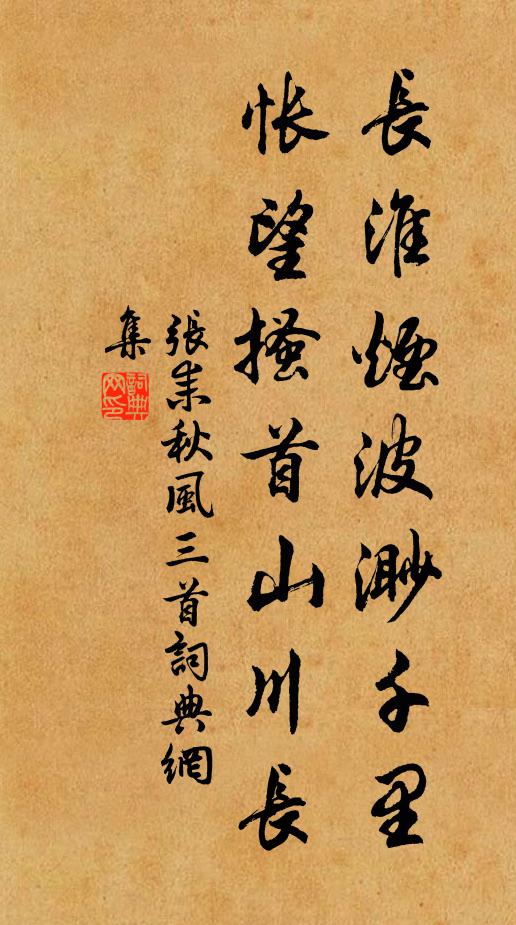 長淮煙波渺千里
悵望搔首山川長
張耒秋風三首詞典網
集
詞典網印